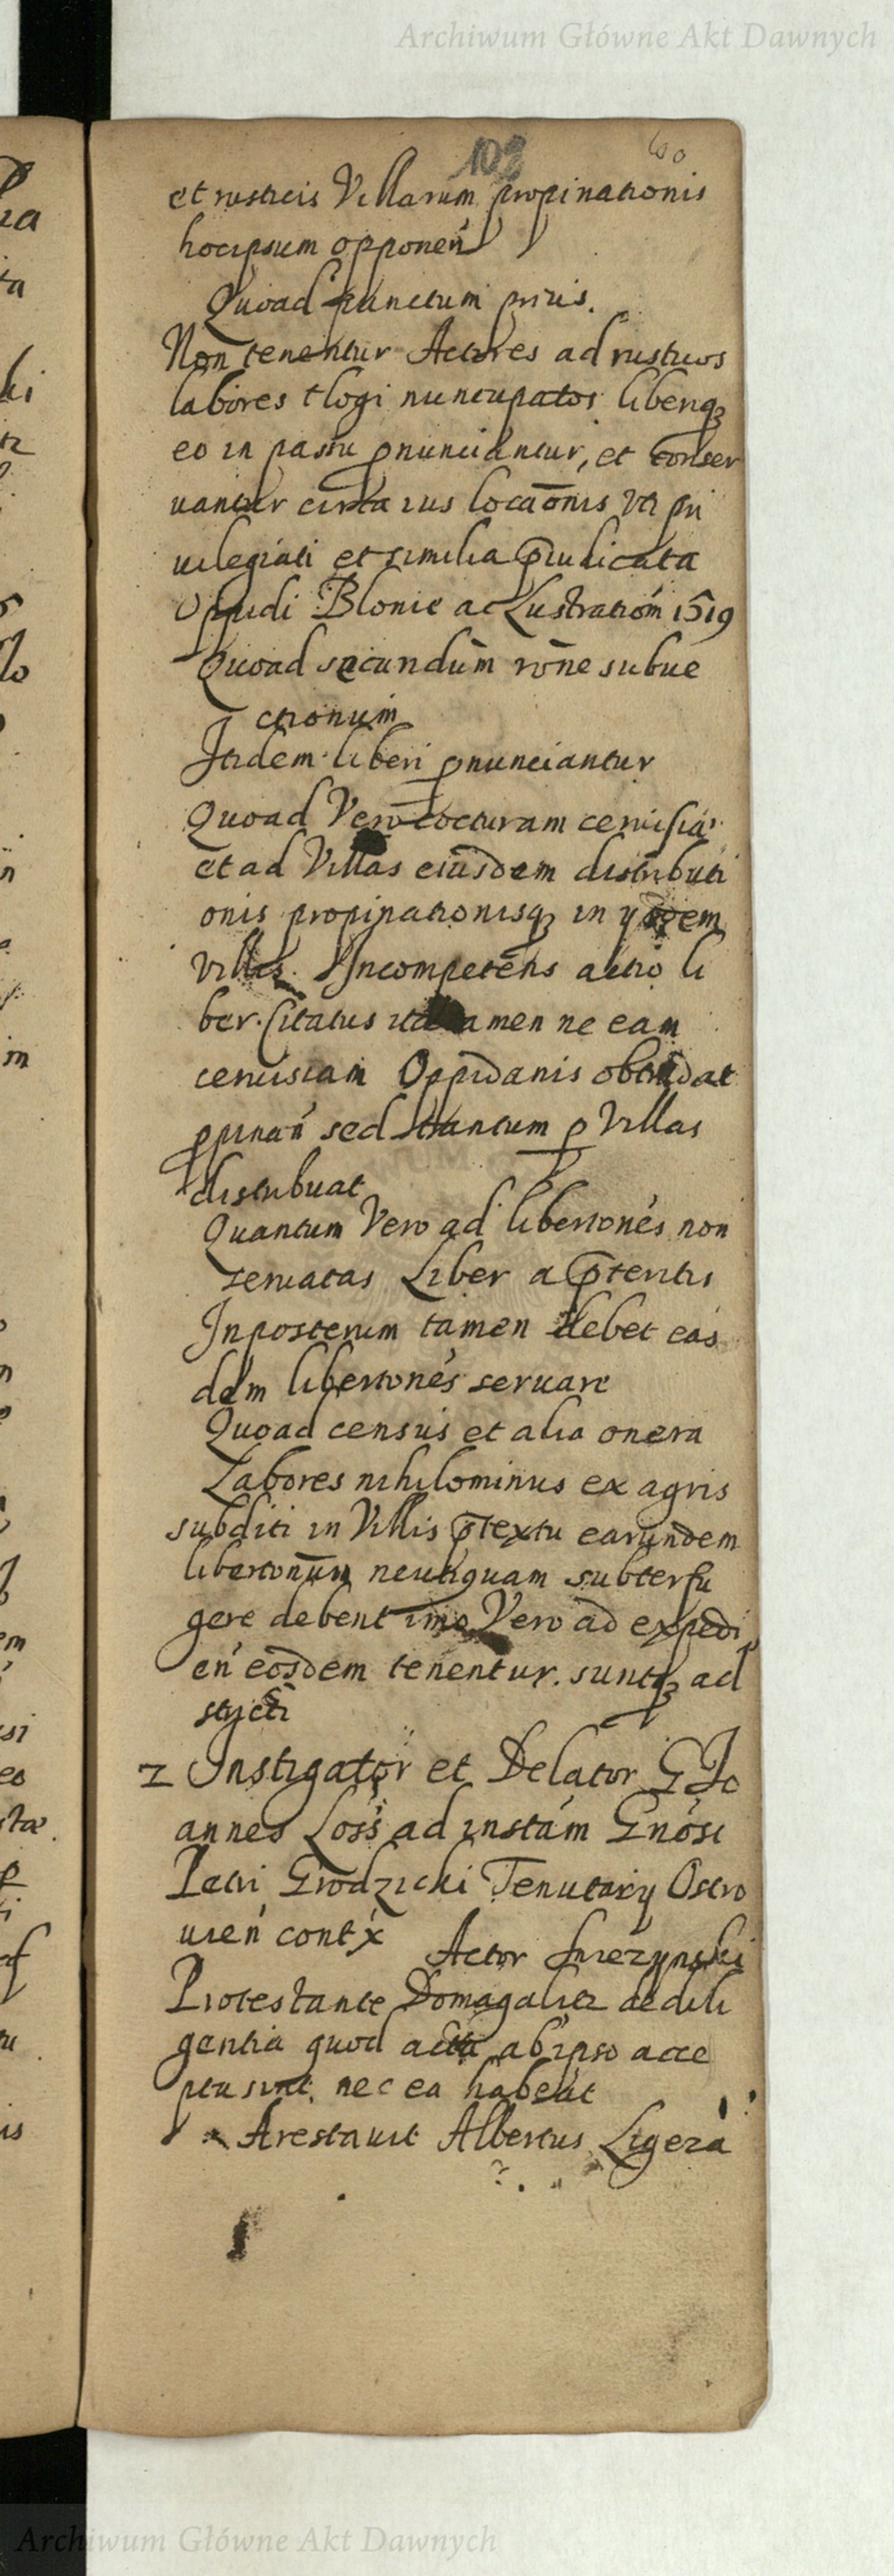 Archiwum Główne Akt Dawnych
108 60
et rusticis Villarum propinationis
hocipsum opponen
Quoad punctum prius.
Non tenentur Actores ad rusticos
labores tlogi nuncupatos liberiq
eo in passu pnunciantur, et conser
uantur circa ius locaōnis uti pri
uilegiati et similia p̄iudicata
Oppidi Blonie ac Lustration 1519
Quoad secundum rōne subue
ctionum
Itidem liberi pnunciantur
Quoad Vero cocturam ceruisia
et ad Villas eiusdem distributi
onis propinationisq in ijsdem
villis. Incompetens actio li
ber. Citatus ita tamen ne eam
ceruisiam Oppidanis obtrudat
ppinan sed tantum p Villas
distribuat
Quantum Vero ad libertones non
seruatas Liber a p̄teritis
Inposterum tamen debet eas
dem libertones seruare
Quoad census et alia onera
Labores nihilominus ex agris
subditi in Villis p̄textu earundem
libertonum neutiquam subterfu
gere debent imo Vero ad expedi
en eosdem tenentur. suntq ad
stricti
2 Instigator et Delator G Jo
annes Loss ad instam Gnosi
Petri Grodzicki Tenutarij Ostro
uien contx
Actor
Protestante Domagalicz de dili
gentia quod acta ab ipso acce
pta sint nec ea habeat
Arestauit Albertus Ligeza
Archiwum Główne Akt Dawnych